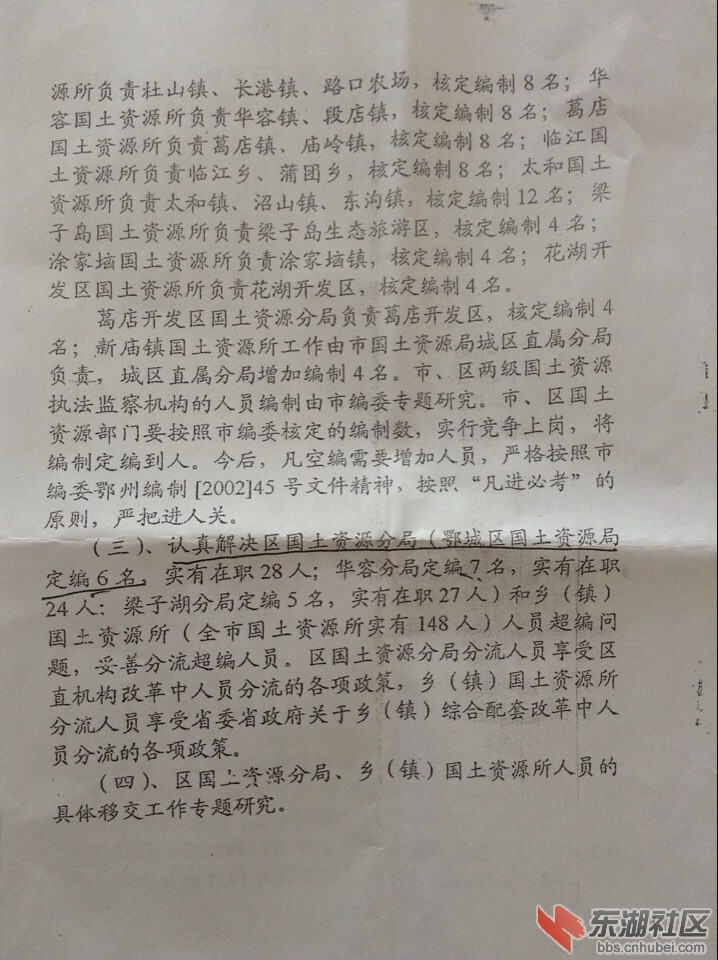 源所负责杜山镇、长港镇、路口农场，核定编制 8 名；华
容国土资源所负责华容镇、段店镇，核定编制 8 名；葛店
国土资源所负责葛店镇、庙岭镇，核定编制 8 名；临江国
土资源所负责临江乡、蒲团乡，核定编制 8 名；太和国土
资源所负责太和镇、沼山镇、东沟镇，核定编制 12 名；梁
子岛国土资源所负责梁子岛生态旅游区，核定编制 4 名；
涂家垴国土资源所负责涂家垴镇，核定编制 4 名；花湖开
发区国土资源所负责花湖开发区，核定编制 4 名。
葛店开发区国土资源分局负责葛店开发区，核定编制 4
名；新庙镇国土资源所工作由市国土资源局城区直属分局
负责，城区直属分局增加编制 4 名。市、区两级国土资源
执法监察机构的人员编制由市编委专题研究。市、区国土
资源部门要按照市编委核定的编制数，实行竞争上岗，将
编制定编到人。今后，凡空编需要增加人员，严格按照市
编委鄂州编制 [2002]45 号文件精神，按照“凡进必考”的
原则，严把进人关。
（三）、认真解决区国土资源分局（鄂城区国土资源局
定编 6 名，实有在职 28 人；华容分局定编 7 名，实有在职
24 人；梁子湖分局定编 5 名，实有在职 27 人）和乡（镇）
国土资源所（全市国土资源所实有 148 人）人员超编问
题，妥善分流超编人员。区国土资源分局分流人员享受区
直机构改革中人员分流的各项政策，乡（镇）国土资源所
分流人员享受省委省政府关于乡（镇）综合配套改革中人
员分流的各项政策。
（四）、区国土资源分局、乡（镇）国土资源所人员的
具体移交工作专题研究。
东湖社区
bbs.cnhubei.com